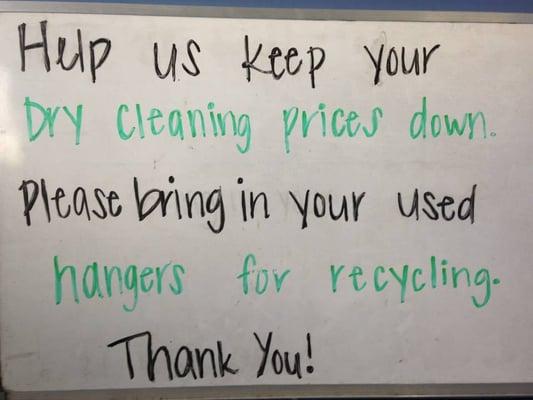 Help us keep your
Dry cleaning prices down.
Please bring in your used
hangers for recycling.
Thank You!